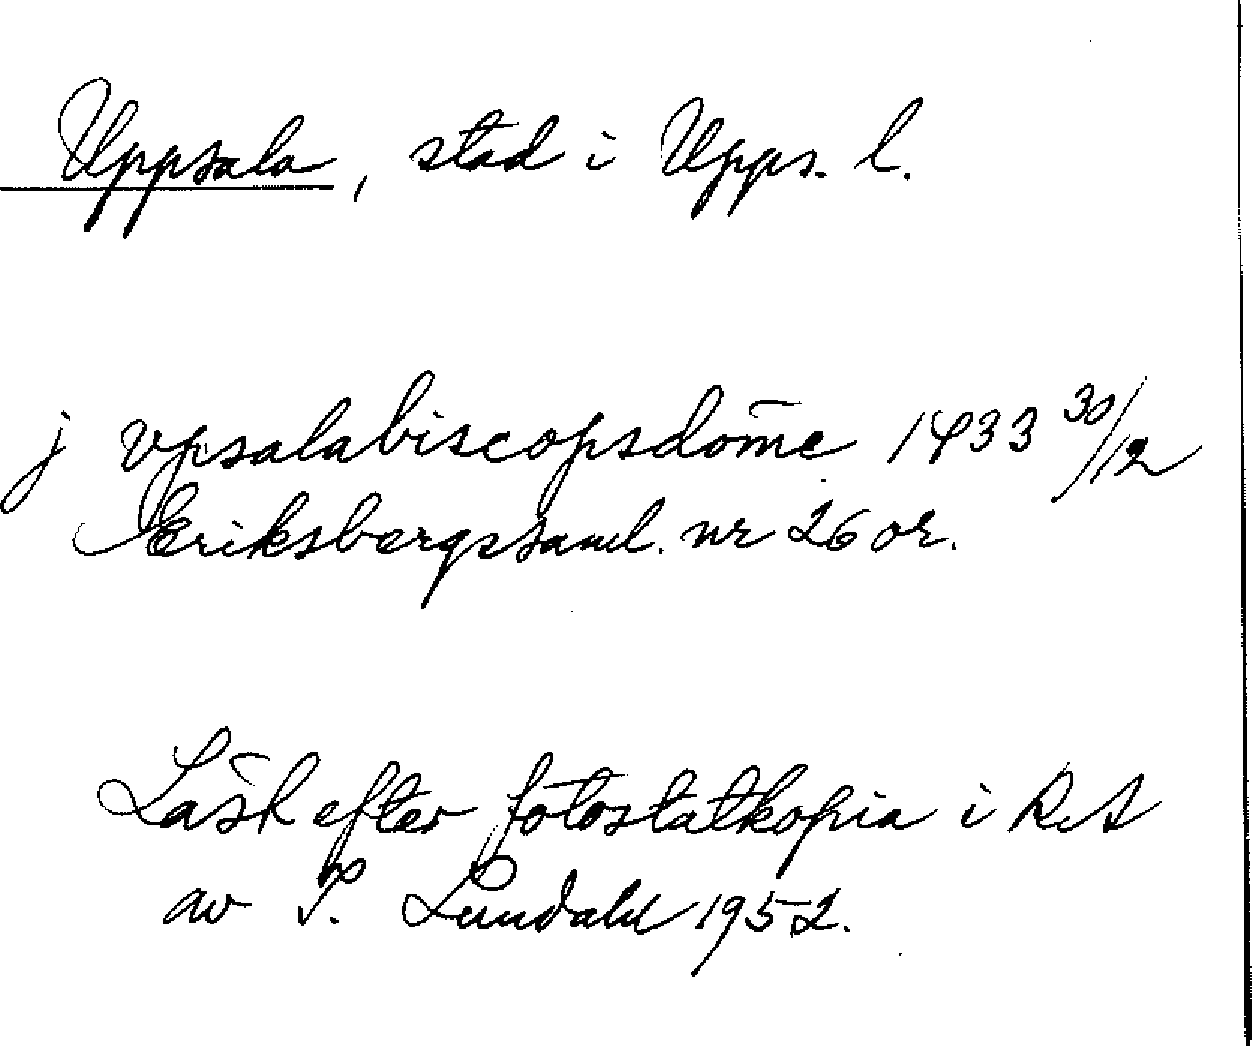 Uppsala, stad i Upps. l.
j vpsalabiscopsdom̄e 1433 30/12
Eriksbergssaml. nr 26 or.
Läst efter fotostatkopia i RA
av I. Lundahl 1952.